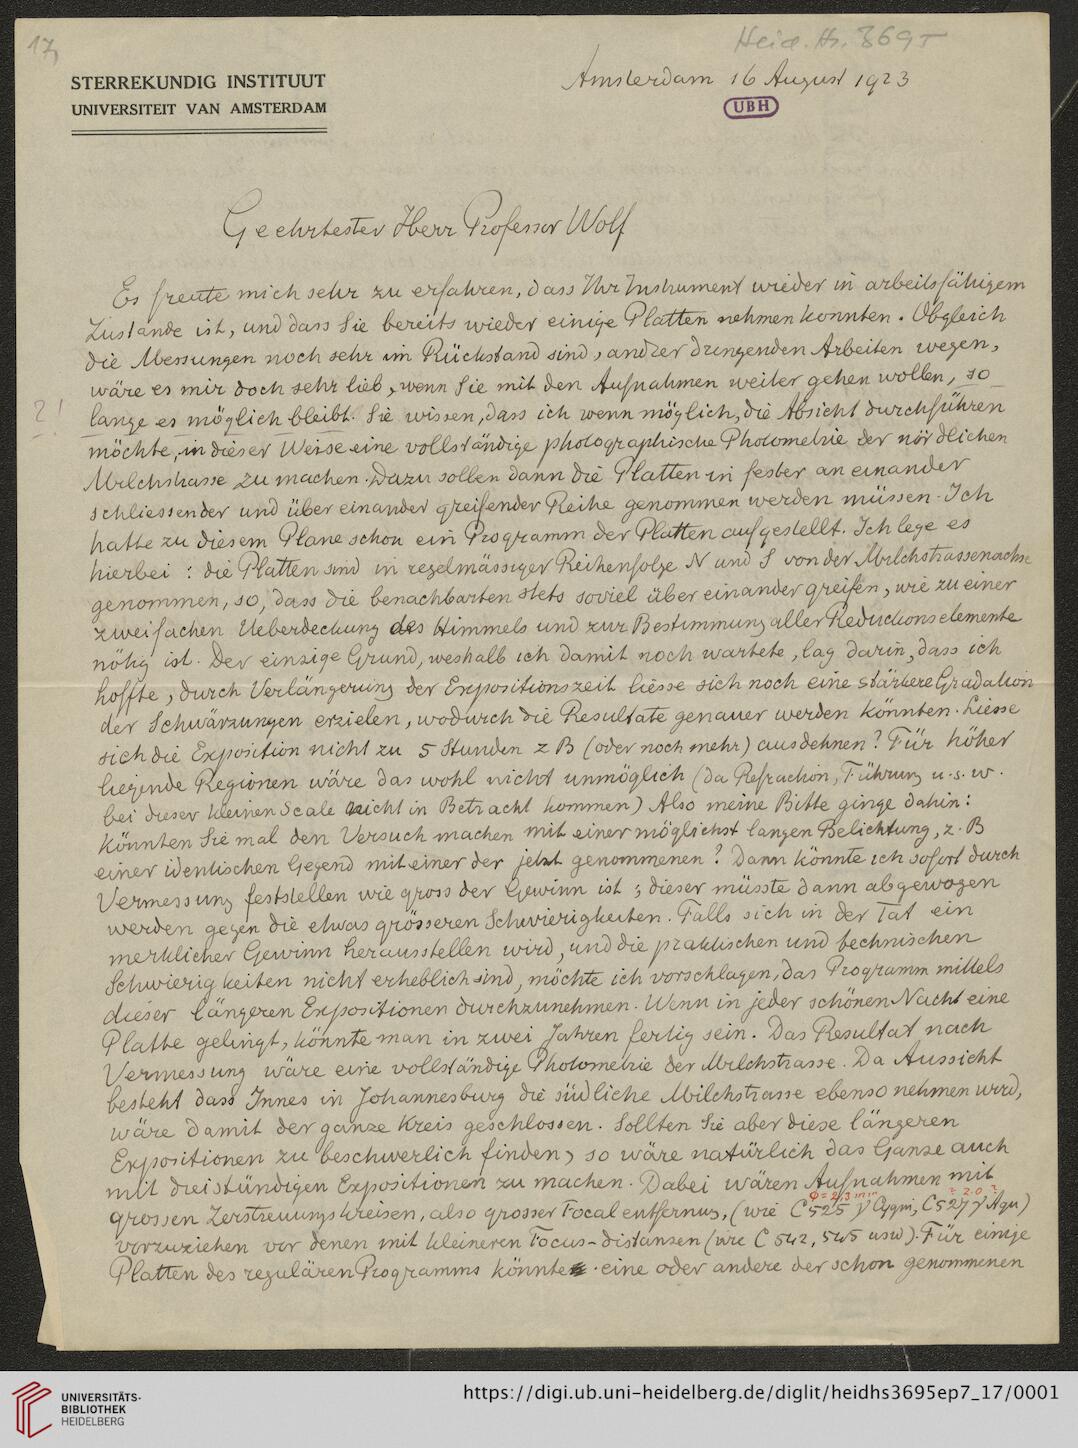 17,
Heid. Hs. 3695
STERREKUNDIG INSTITUUT
UNIVERSITEIT VAN AMSTERDAM
Amsterdam 16 August 1923
UBH
Geehrtester Herr Professor Wolf
Es freute mich sehr zu erfahren, dass Ihr Instrument wieder in arbeitsfähigem
Zustande ist, und dass Sie bereits wieder einige Platten nehmen konnten. Obgleich
die Messungen noch sehr im Rückstand sind, andrer dringenden Arbeiten wegen,
wäre es mir doch sehr lieb, wenn Sie mit den Aufnahmen weiter gehen wollen, so
?! lange es möglich bleibt. Sie wissen, dass ich wenn möglich, die Absicht durchführen
möchte, in dieser Weise eine vollständige photographische Photometrie der nördlichen
Milchstrasse zu machen. Dazu sollen dann die Platten in fester an einander
schliessender und über einander greifender Reihe genommen werden müssen. Ich
hatte zu diesem Plane schon ein Programm der Platten aufgestellt. Ich lege es
hierbei: die Platten sind in regelmässiger Reihenfolge N und S von der Milchstrassenachse
genommen, so, dass die benachbarten stets soviel über einander greifen, wie zu einer
zweifachen Ueberdeckung des Himmels und zur Bestimmung aller Reductionselemente
nötig ist. Der einzige Grund, weshalb ich damit noch wartete, lag darin, dass ich
hoffte, durch Verlängerung der Expositionszeit liesse sich noch eine stärkere Gradation
der Schwärzungen erzielen, wodurch die Resultate genauer werden könnten. Liesse
sich die Exposition nicht zu 5 Stunden z B (oder noch mehr) ausdehnen? Für höher
liegende Regionen wäre das wohl nicht unmöglich (da Refraction, Führung u.s.w.
bei dieser kleinen Scale nicht in Betracht kommen) Also meine Bitte ginge dahin:
könnten Sie mal den Versuch machen mit einer möglichst langen Belichtung, z.B
einer identischen Gegend mit einer der jetzt genommenen? Dann könnte ich sofort durch
Vermessung feststellen wie gross der Gewinn ist; dieser müsste dann abgewogen
werden gegen die etwas grösseren Schwierigkeiten. Falls sich in der Tat ein
merklicher Gewinn herausstellen wird, und die praktischen und technischen
Schwierigkeiten nicht erheblich sind, möchte ich vorschlagen, das Programm mittels
dieser längeren Expositionen durchzunehmen. Wenn in jeder schönen Nacht eine
Platte gelingt, könnte man in zwei Jahren fertig sein. Das Resultat nach
Vermessung wäre eine vollständige Photometrie der Milchstrasse. Da Aussicht
besteht dass Innes in Johannesburg die südliche Milchstrasse ebenso nehmen wird,
wäre damit der ganze Kreis geschlossen. Sollten Sie aber diese längeren
Expositionen zu beschwerlich finden, so wäre natürlich das Ganze auch
mit dreistündigen Expositionen zu machen. Dabei wären Aufnahmen mit
grossen Zerstreuungskreisen, also grosser Focalentfernung, (wie C 525 γ Cygni, C 527 γ Aqu)
vorzuziehen vor denen mit kleineren Focus-distanzen (wie C 542, 545 usw). Für einige
Platten des regulären Programms könnte eine oder andere der schon genommenen
UNIVERSITÄTS-
BIBLIOTHEK
HEIDELBERG
https://digi.ub.uni-heidelberg.de/diglit/heidhs3695ep7_17/0001